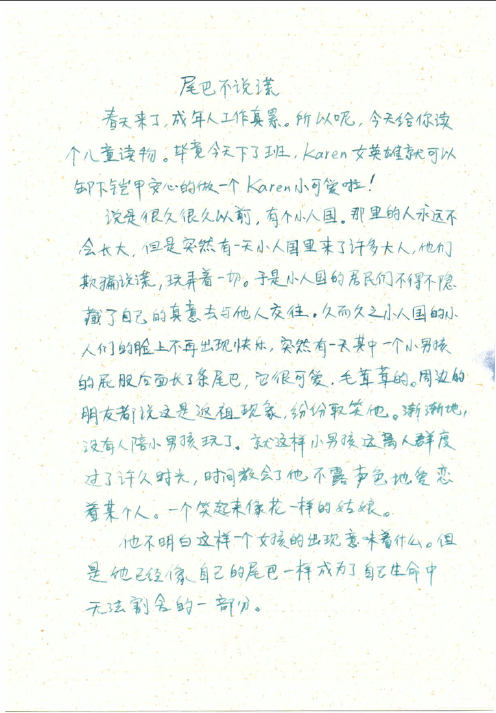 尾巴不说谎
春天来了,成年人工作真累。所以呢,今天给你读
个儿童读物。毕竟今天下了班,Karen女英雄就可以
卸下铠甲安心的做一个Karen小可爱啦!
说是很久很久以前,有个小人国。那里的人永远不
会长大,但是突然有一天小人国里来了许多大人,他们
欺骗说谎,玩弄着一切。于是小人国的居民们不得不隐
藏了自己的真意去与他人交往。久而久之小人国的小
人们的脸上不再出现快乐,突然有一天其中一个小男孩
的屁股后面长了条尾巴,它很可爱,毛茸茸的。周边的
朋友都说这是返祖现象,纷纷耻笑他。渐渐地,
没有人陪小男孩玩了。就这样小男孩远离人群度
过了许久时光,时间教会了他不露声色地爱恋
着某个人。一个笑起来像花一样的姑娘。
他不明白这样一个女孩的出现意味着什么。但
是他已经像自己的尾巴一样成为了自己生命中
无法割舍的一部分。